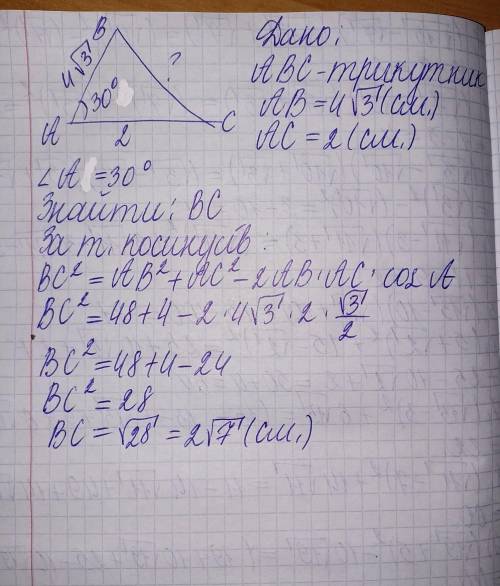 B
4√3
?
30°
A
2
C
Дано:
ABC - трикутник
AB = 4√3 (см.)
AC = 2 (см.)
∠A = 30°
Знайти: BC
За т. косинусів:
BC² = AB² + AC² - 2AB · AC · cos A
BC² = 48 + 4 - 2 · 4√3 · 2 · √3/2
BC² = 48 + 4 - 24
BC² = 28
BC = √28 = 2√7 (см.)